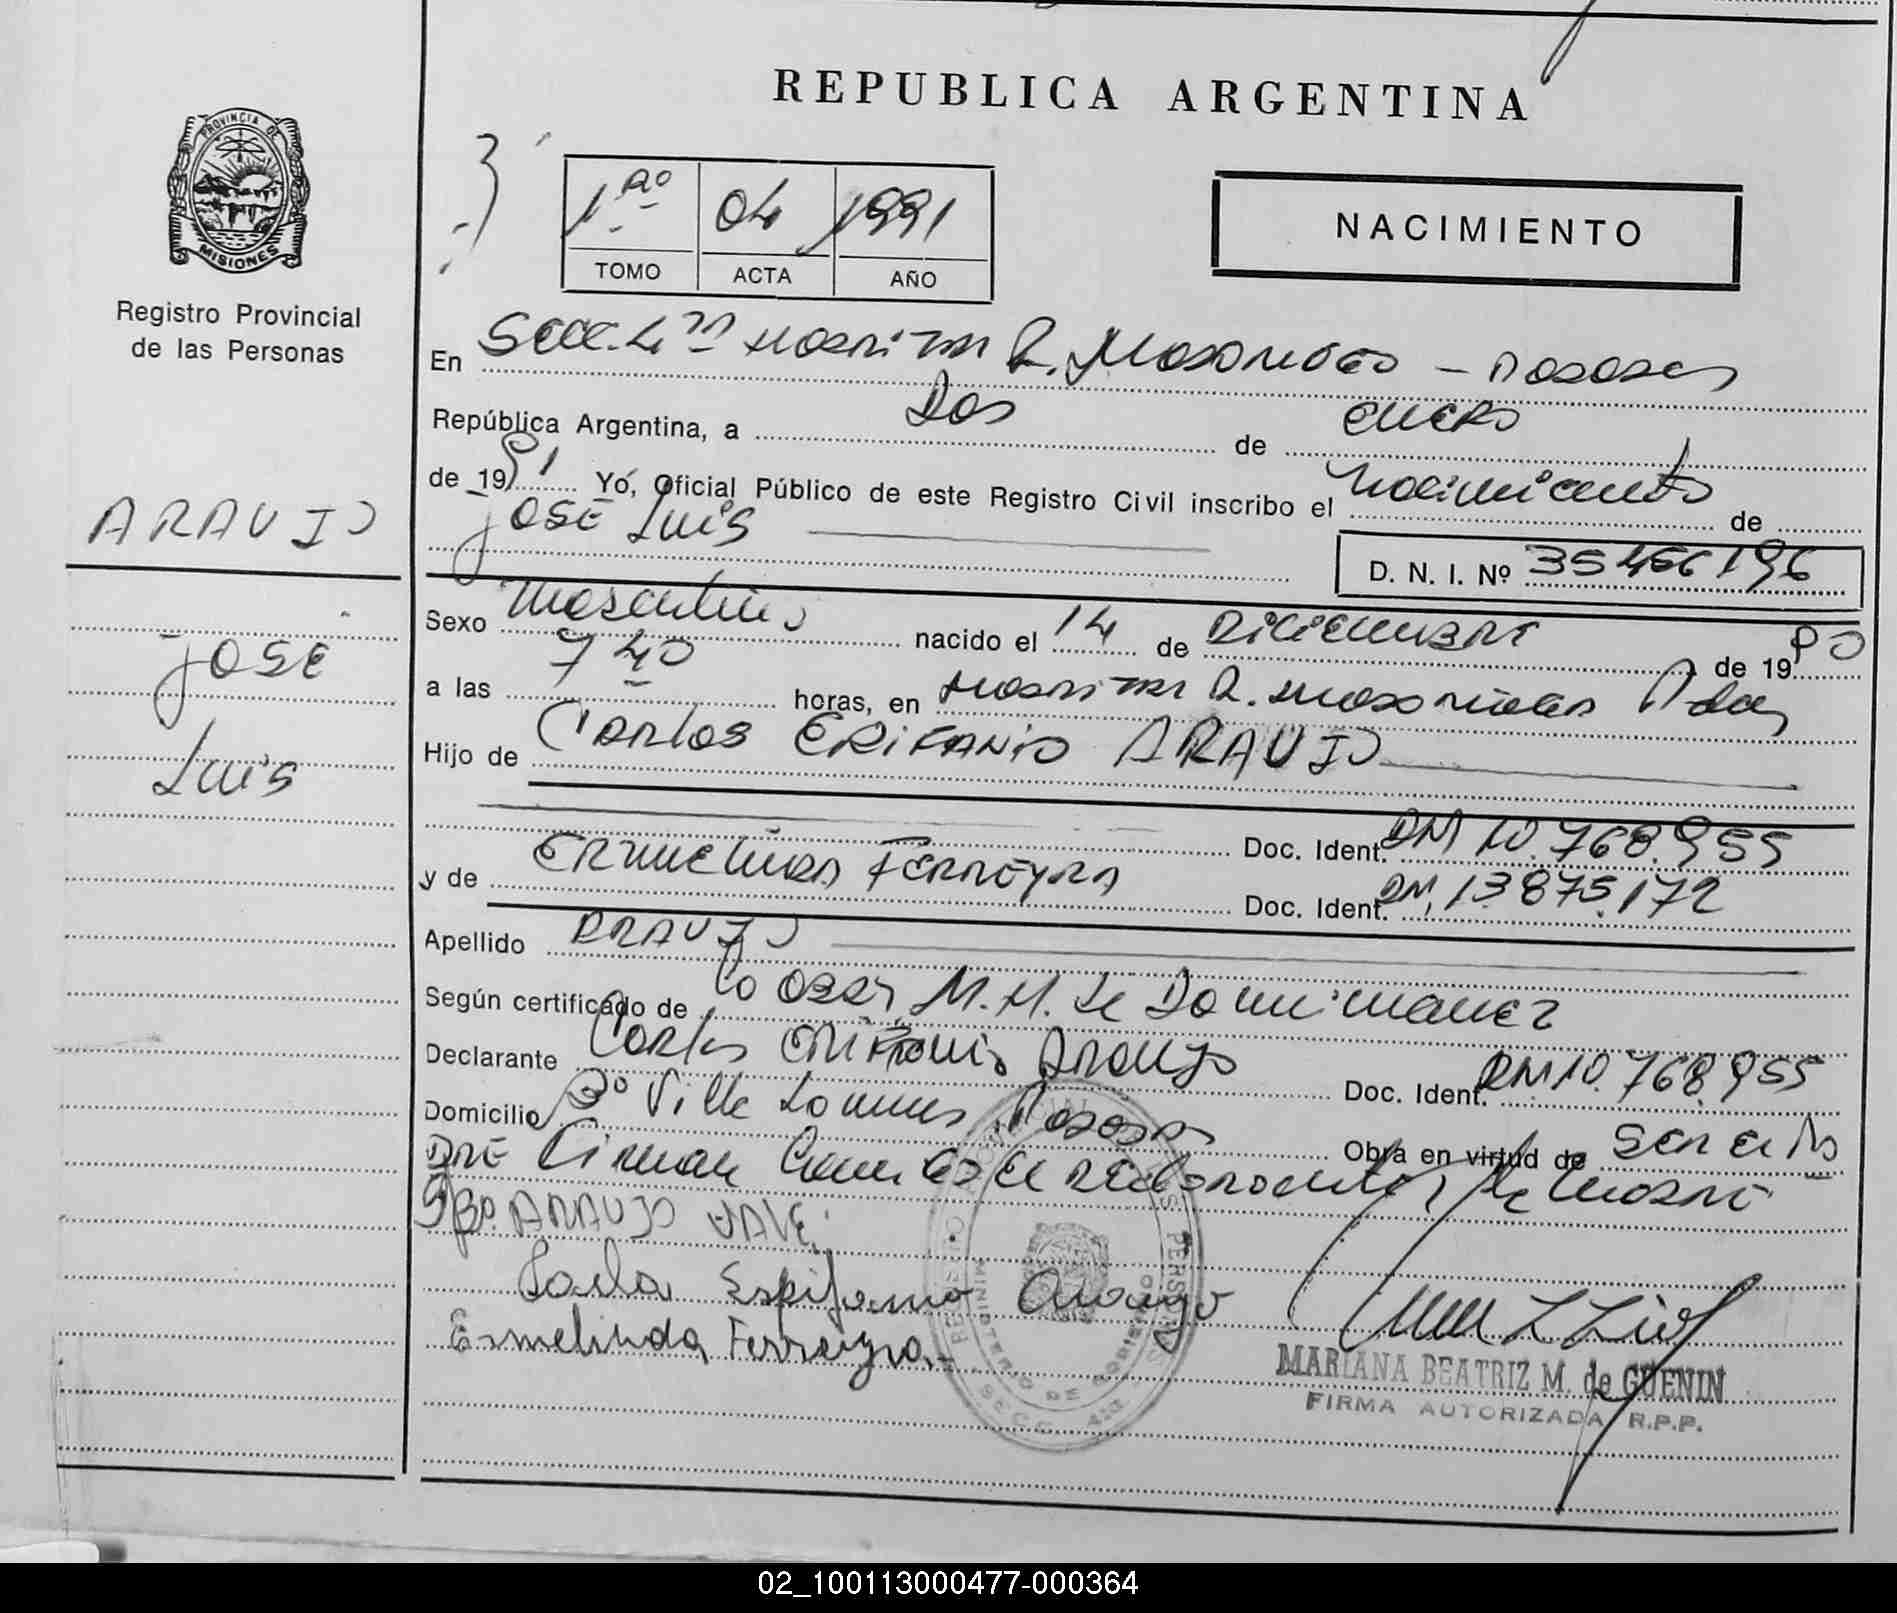 REPUBLICA ARGENTINA
PROVINCIA DE
MISIONES
Registro Provincial
de las Personas
1ro 04 1991
TOMO ACTA AÑO
NACIMIENTO
En Secc. 4ta Hospital R. Madariaga - Posadas
República Argentina, a Dos de enero
de 1991 Yo, Oficial Público de este Registro Civil inscribo el nacimiento de
JOSE Luis
D. N. I. Nº 35456196
ARAUJO
JOSE
Luis
Sexo masculino nacido el 14 de Diciembre de 1990
a las 7 40 horas, en Hospital R. Madariaga Pdas
Hijo de Carlos EPIFANIO ARAUJO
Doc. Ident. DNI 10.768.955
y de ERMELINDA FERREYRA Doc. Ident. DNI. 13875.172
Apellido ARAUJO
Según certificado de la Obst. M. M. de Domínguez
Declarante Carlos EPIFANIO Araujo Doc. Ident. DNI 10.768.955
Domicilio Bº Villa Lannus Posadas Obra en virtud de ser el
PADRE Firman la madre
ARAUJO VALE.
Espifanio Araujo
Ermelinda Ferreyra.-
MARIANA BEATRIZ M. de GUENIN
FIRMA AUTORIZADA R.P.P.
MINISTERIO DE GOBIERNO
SECC.
02_100113000477-000364